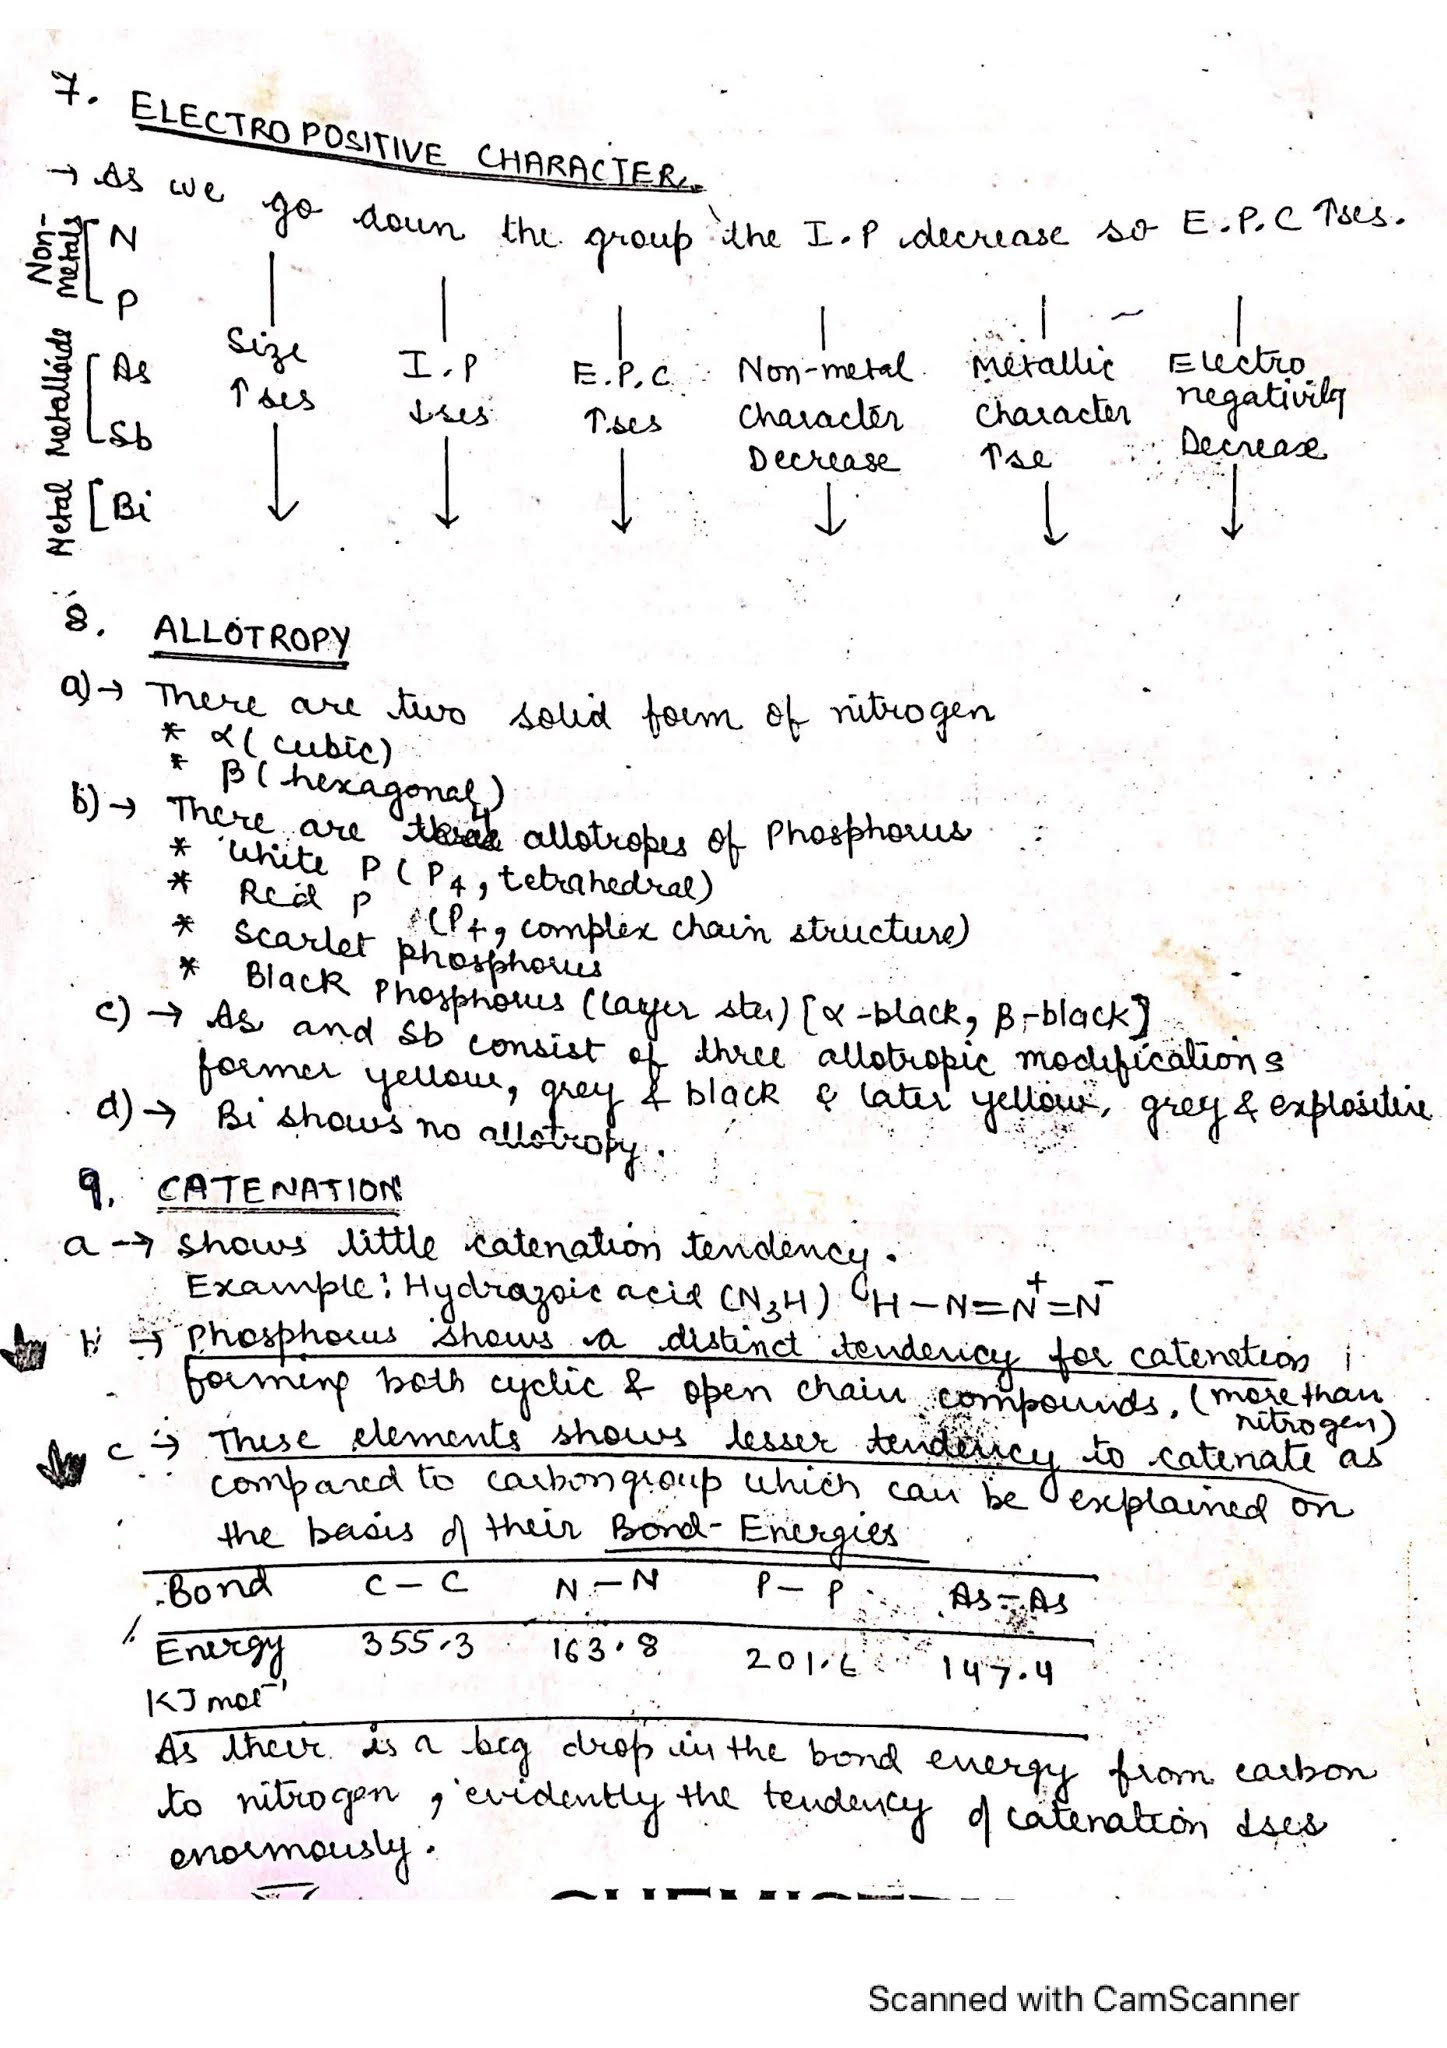 7. ELECTRO POSITIVE CHARACTER.
→ As we go down the group the I.P decrease so E.P.C ↑ses.
Non-metals [ N
P
Metalloids [ As
Sb
Metal [ Bi
Size
↑ses
I.P
↓ses
E.P.C
↑ses
Non-metal
character
Decrease
Metallic
character
↑se
Electro
negativity
Decrease
8. ALLOTROPY
a) → There are two solid form of nitrogen
* α (cubic)
* β (hexagonal)
b) → There are 4 allotropes of Phosphorus
* White P (P4, tetrahedral)
* Red P (P4, complex chain structure)
* Scarlet phosphorus
* Black Phosphorus (layer str) [α-black, β-black]
c) → As and Sb consist of three allotropic modifications
former yellow, grey & black & later yellow, grey & explositive
d) → Bi shows no allotropy.
9. CATENATION
a → shows little catenation tendency.
Example: Hydrazoic acid (N3H) H–N=N+=N-
b → Phosphorus shows a distinct tendency for catenation
forming both cyclic & open chain compounds. (more than
nitrogen)
c → These elements shows lesser tendency to catenate as
compared to carbon group which can be explained on
the basis of their Bond-Energies
Bond C–C N–N P–P As–As
Energy 355.3 163.8 201.6 147.4
KJ mol-1
As their is a big drop in the bond energy from carbon
to nitrogen, evidently the tendency of catenation ↓ses
enormously.
Scanned with CamScanner